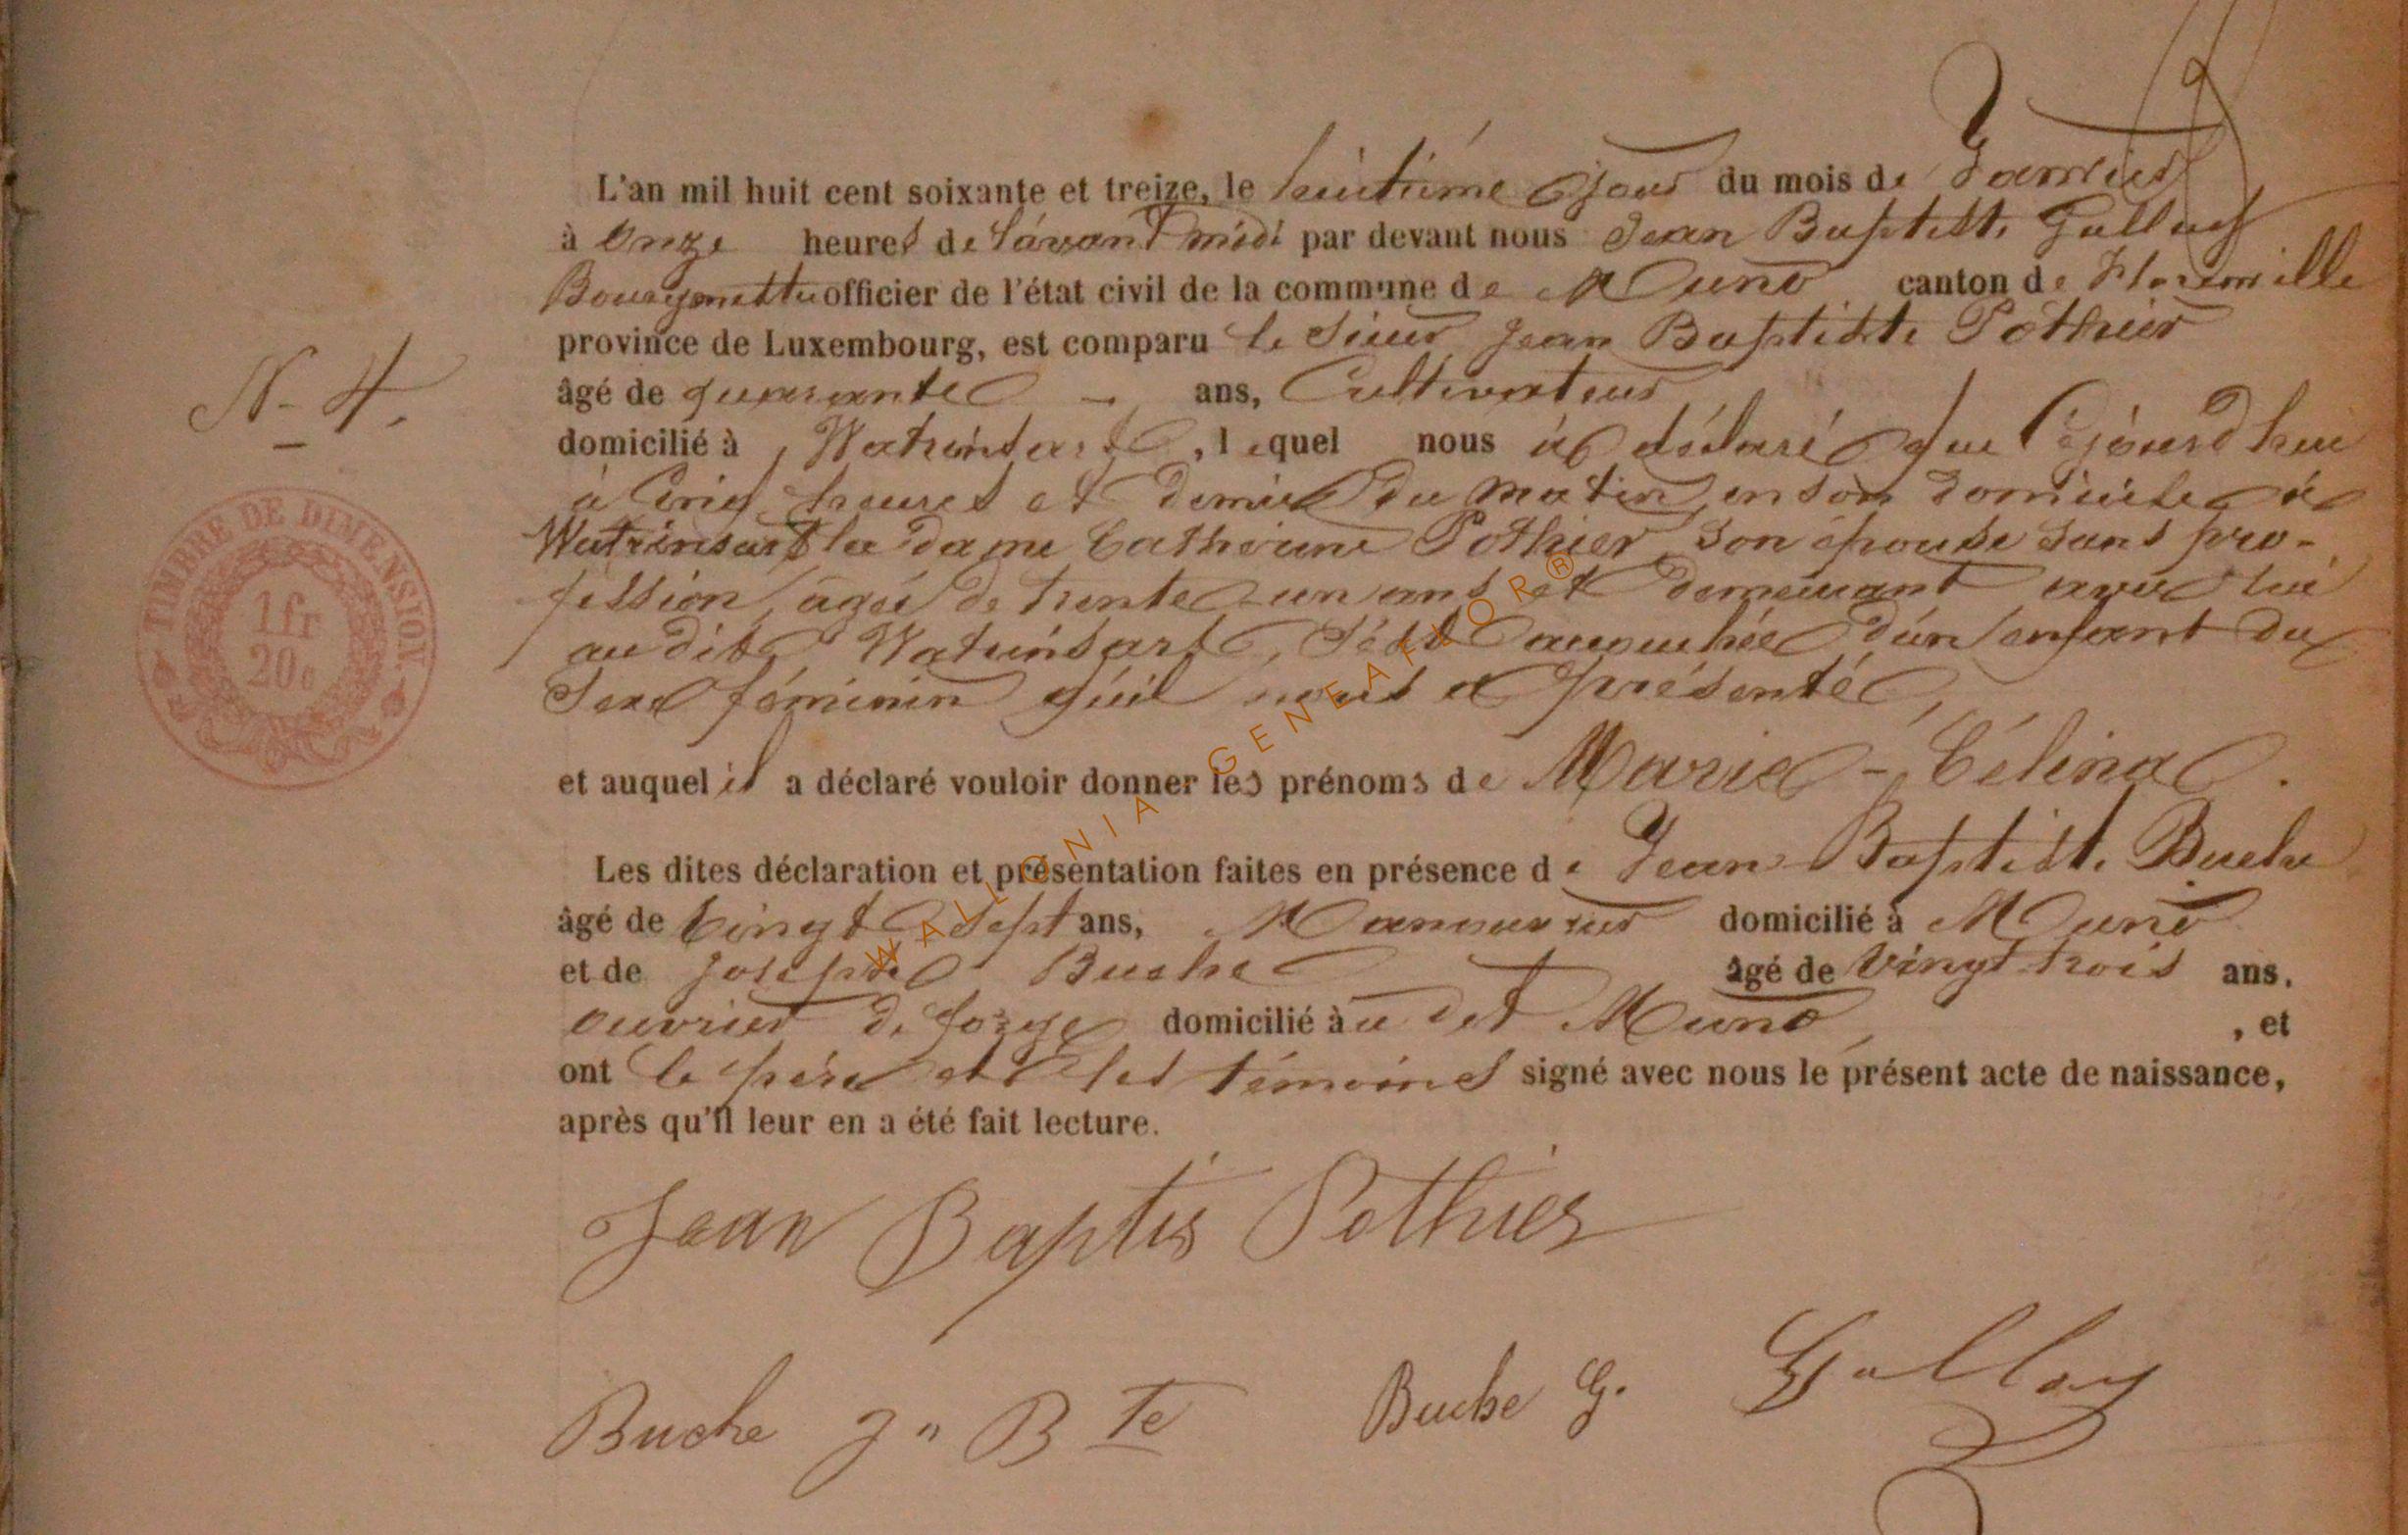 L'an mil huit cent soixante et treize, le huitième Jour du mois de Janvier
à Onze heures de l'avant midi par devant nous Jean Baptiste Gallay
Bourgmestre officier de l'état civil de la commune de Muno canton de Florenville
province de Luxembourg, est comparu le Sieur Jean Baptiste Pothier
âgé de quarante - ans, Cultivateur
N° 4.
domicilié à Watrinsart, lequel nous a déclaré que Cejourd'hui
à Cinq heures et demie du matin, en son domicile à
Watrinsart la dame Catherine Pothier son épouse sans pro-
fession, âgée de trente-un ans et demeurant avec lui
au dit Watrinsart, s'est accouchée d'un enfant du
Sexe féminin qu'il nous a présenté,
et auquel il a déclaré vouloir donner les prénoms de Marie-Célina.
Les dites déclaration et présentation faites en présence de Jean Baptiste Buche
âgé de vingt sept ans, Manoeuvre domicilié à Muno
et de Joseph Buche âgé de vingt trois ans.
ouvrier de forge domicilié au dit Muno, et
ont le père et les témoins signé avec nous le présent acte de naissance,
après qu'il leur en a été fait lecture.
TIMBRE DE DIMENSION
1fr
20c
WALLONIA GENEAFLOR®
Jean Baptis Pothier
Buche Jn Bte Buche G. Gallay